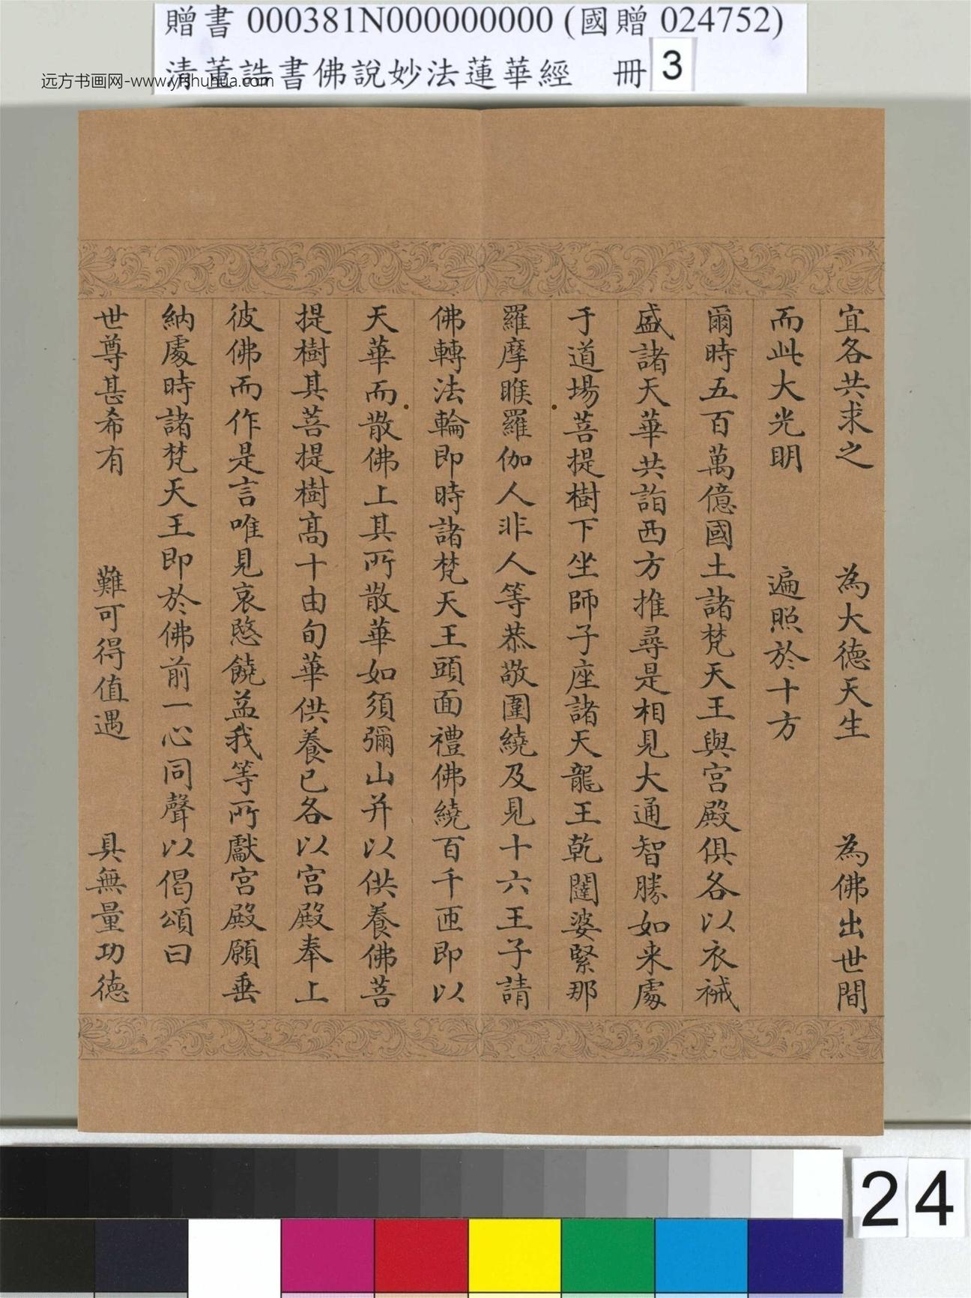 贈書 000381N000000000 (國贈 024752)
清董誥書佛說妙法蓮華經 冊 3
远方书画网-www.yfshuhua.com
宜各共求之 為大德天生 為佛出世間
而此大光明 遍照於十方
爾時五百萬億國土諸梵天王與宮殿俱各以衣祴
盛諸天華共詣西方推尋是相見大通智勝如來處
于道場菩提樹下坐師子座諸天龍王乾闥婆緊那
羅摩睺羅伽人非人等恭敬圍繞及見十六王子請
佛轉法輪即時諸梵天王頭面禮佛繞百千匝即以
天華而散佛上其所散華如須彌山并以供養佛菩
提樹其菩提樹高十由旬華供養已各以宮殿奉上
彼佛而作是言唯見哀愍饒益我等所獻宮殿願垂
納處時諸梵天王即於佛前一心同聲以偈頌曰
世尊甚希有 難可得值遇 具無量功德
24